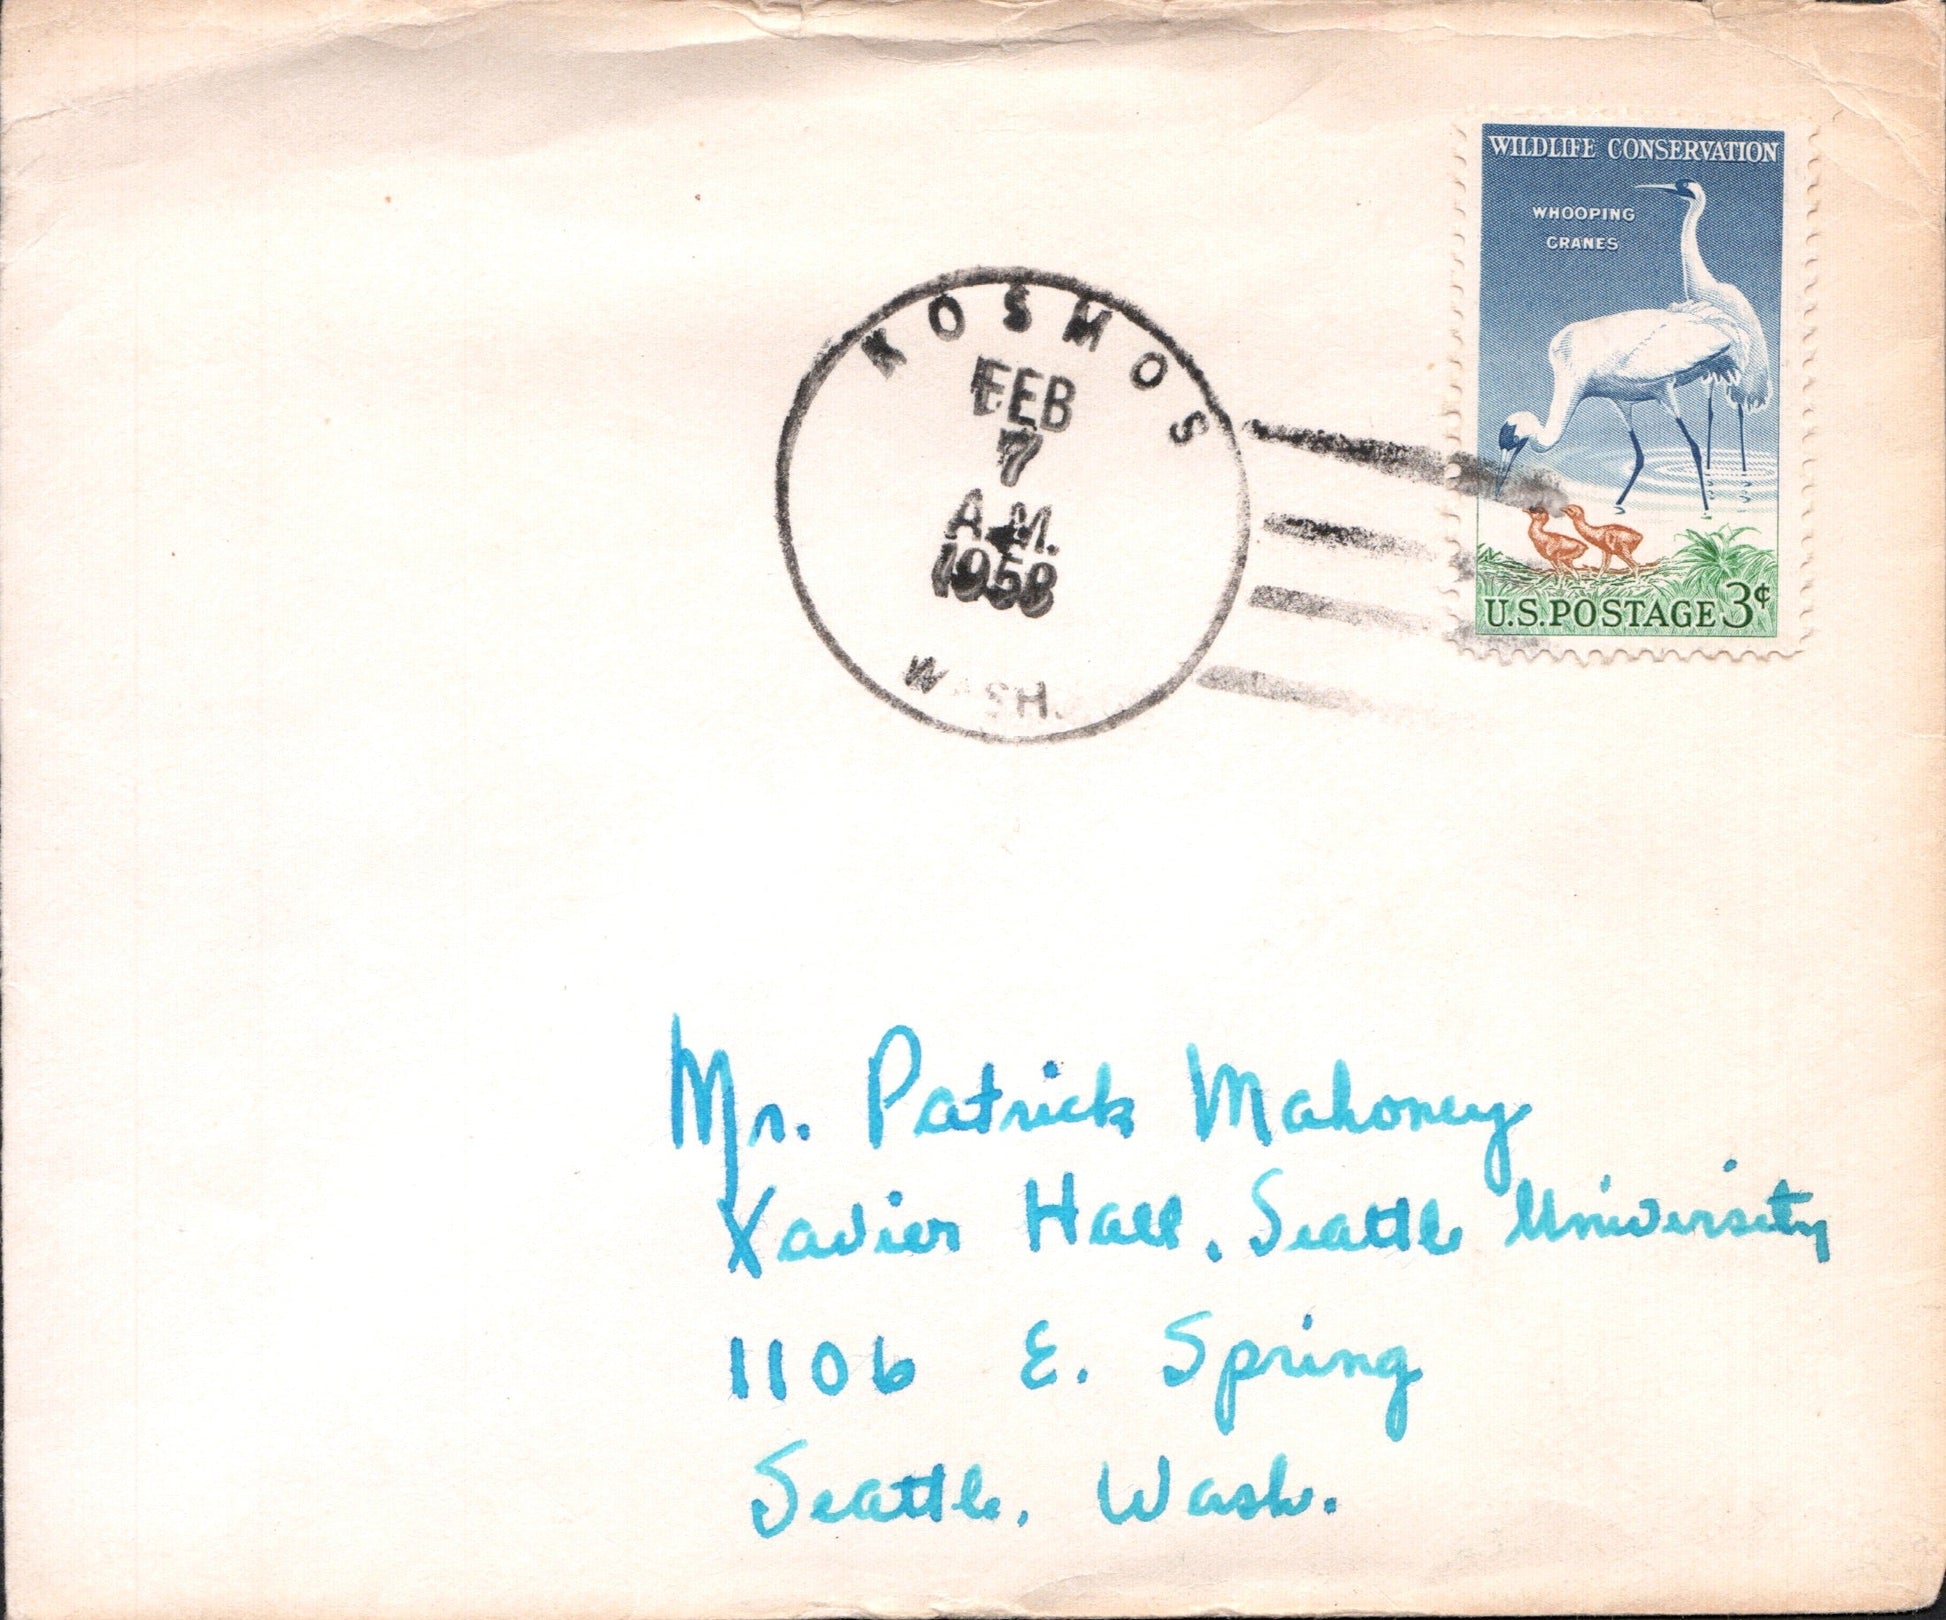 WILDLIFE CONSERVATION
WHOOPING
CRANES
U.S. POSTAGE 3¢
KOSMOS
FEB
7
A.M.
1958
WASH.
Mr. Patrick Mahoney
Xavier Hall, Seattle University
1106 E. Spring
Seattle, Wash.